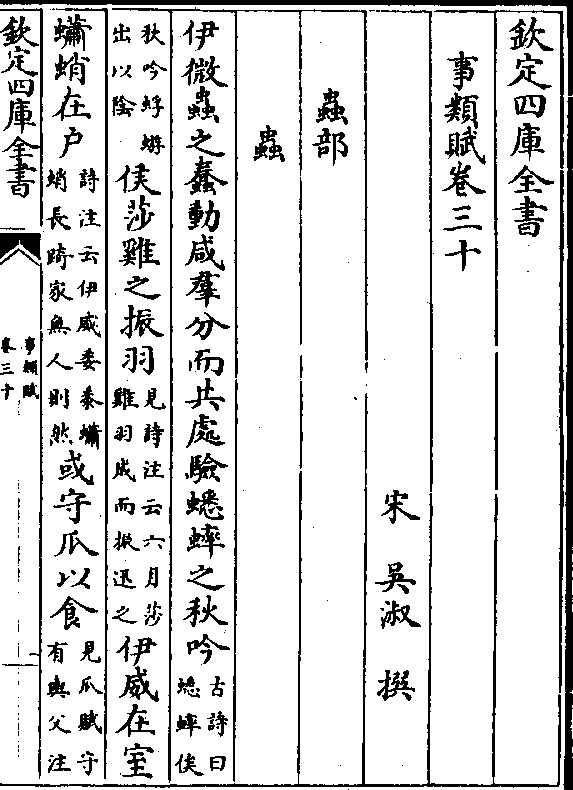 欽定四庫全書
事類賦卷三十
宋 吳淑 撰
蟲部
蟲
伊微蟲之蠢動咸羣分而共處驗蟋蟀之秋吟古詩曰蟋蟀俟
秋吟蜉蝣出以陰俟莎雞之振羽見詩注云六月莎雞羽成而振迅之伊威在室
蠨蛸在户詩注云伊威委黍蠨蛸長踦家無人則然或守瓜以食見瓜賦守有輿父注
欽定四庫全書
事類賦
卷三十